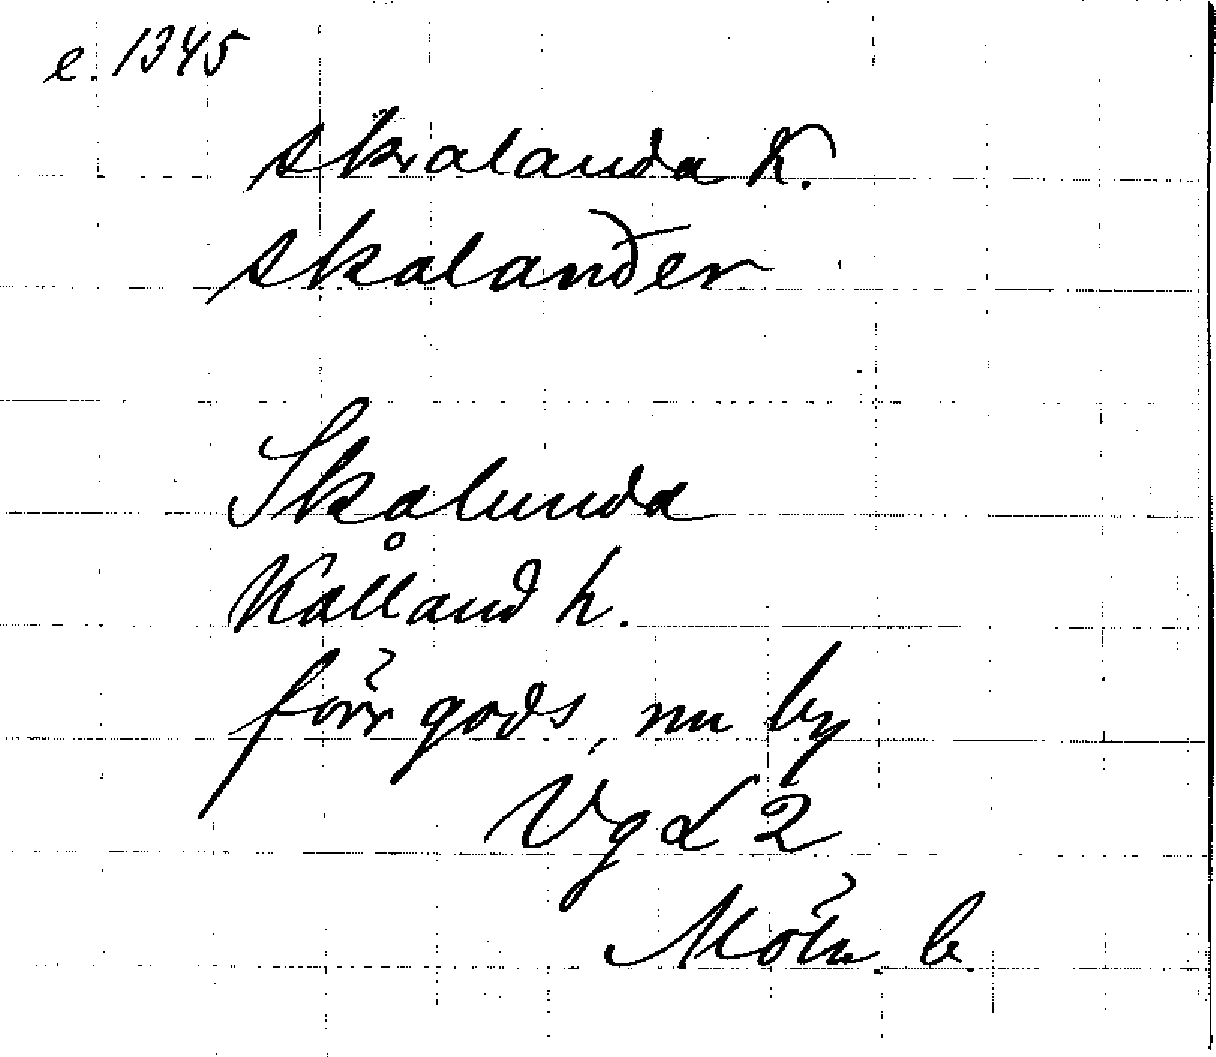 e. 1345
skalanda K.
skalander
Skalunda
Kålland h.
förr gods, nu by
VgL 2
Möln. b.